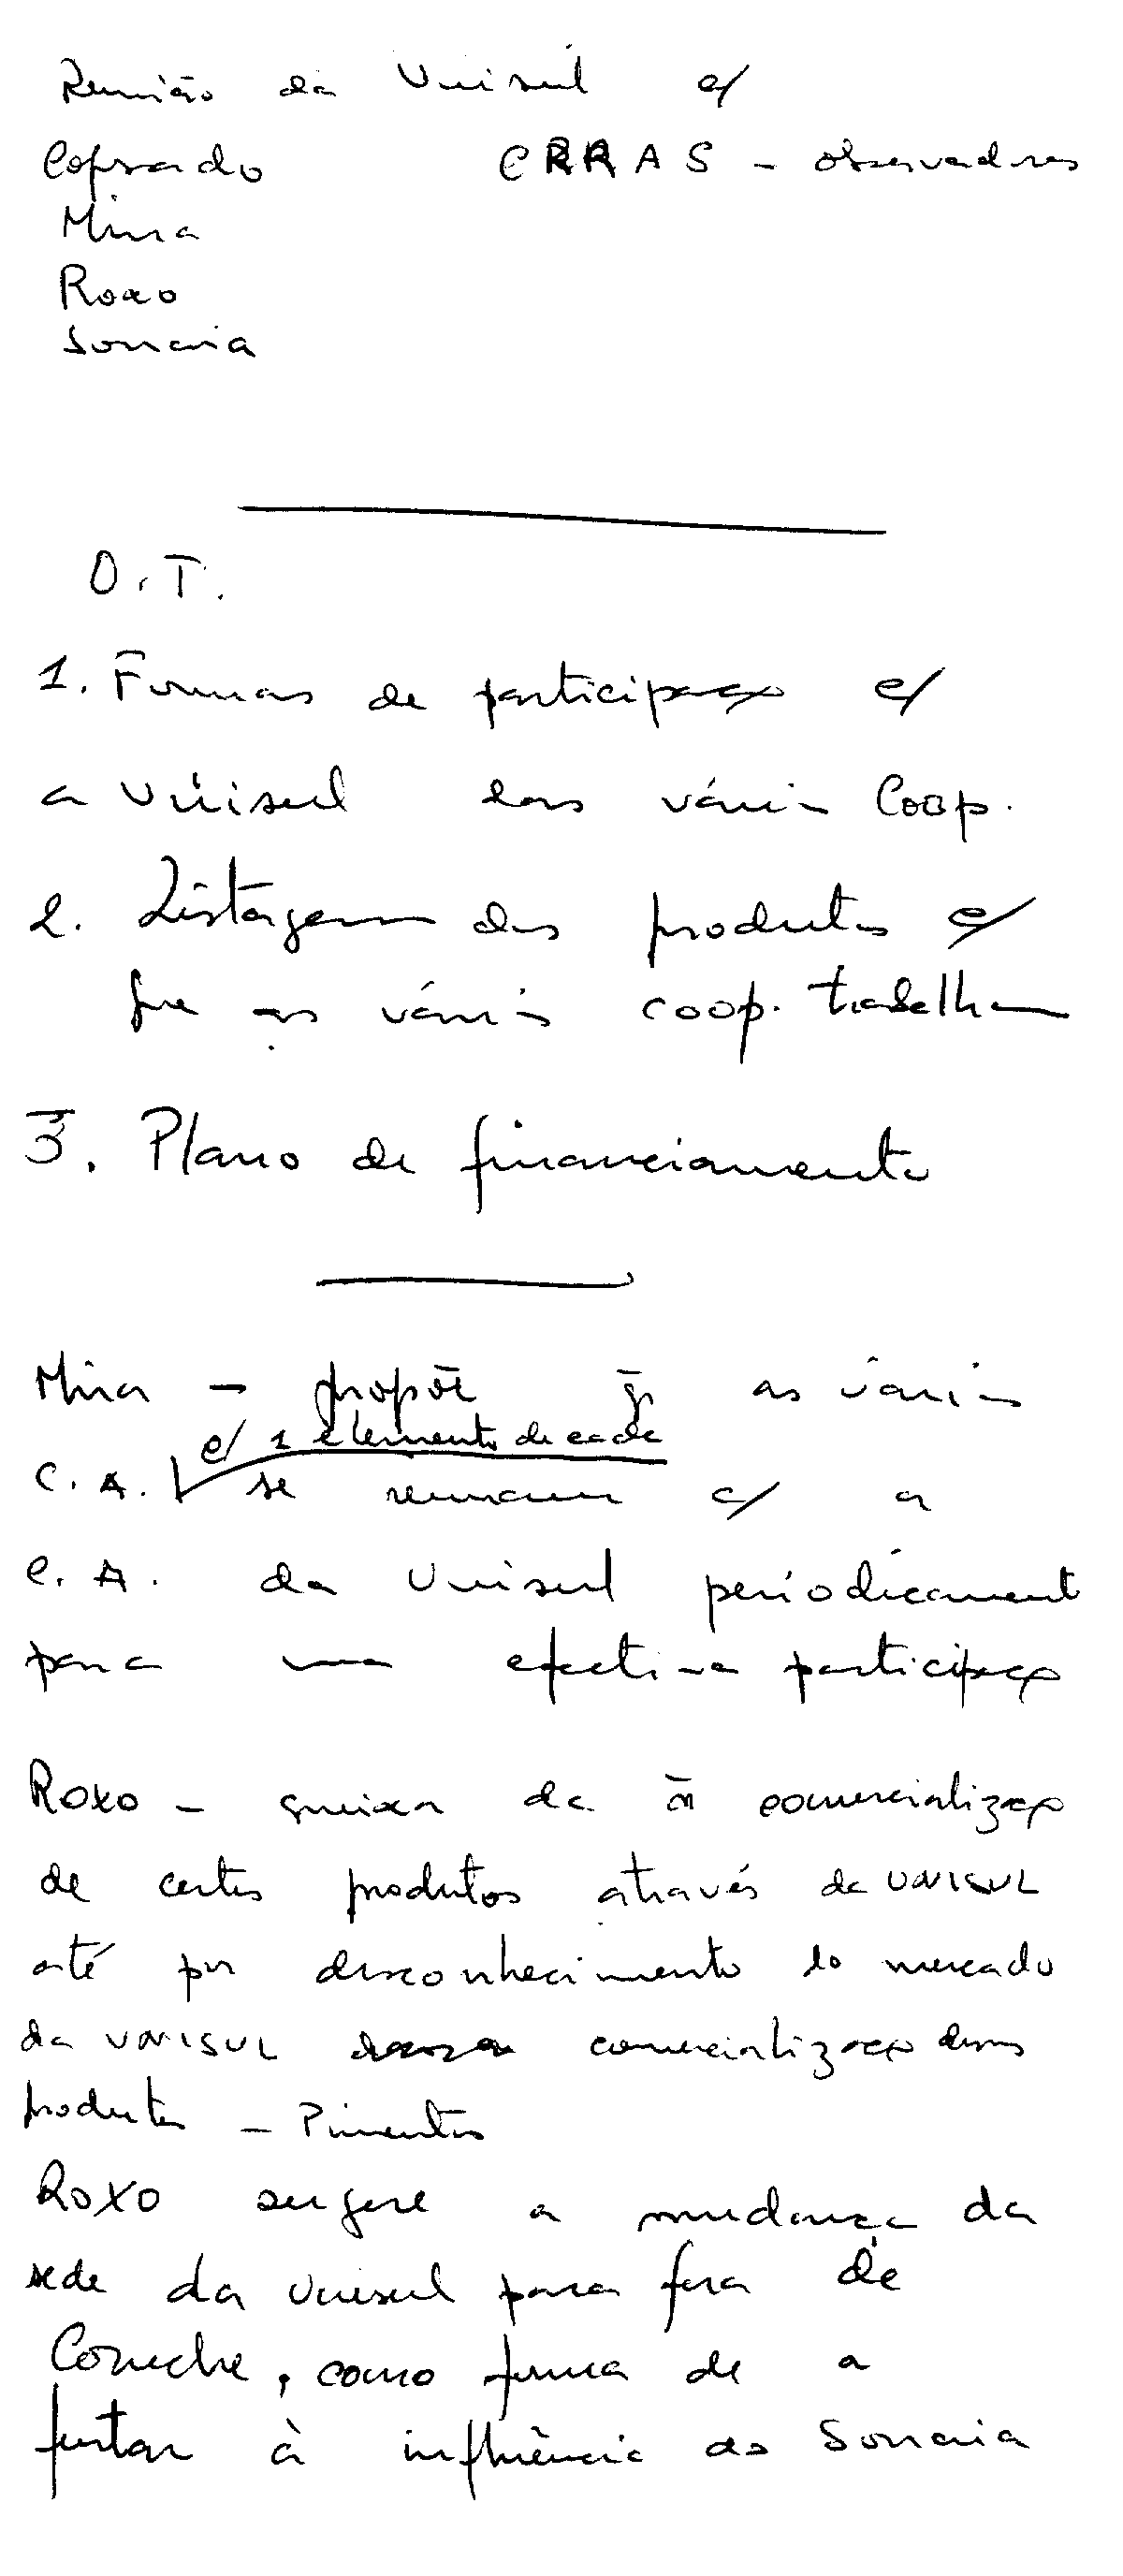 Reunião da Unisul c/
Coprado CRRAS - observadores
Mira
Roxo
Sorraia
O.T.
1. Formas de participação c/
a Unisul das várias Coop.
2. Listagem dos produtos c/
que as várias coop. trabalham
3. Plano de financiamento
Mira - propõe q̄ as várias
c/ 1 elemento de cada
C.A. se reunam c/ a
C.A. da Unisul periodicament
para uma efectiva participação
Roxo - queixa da ñ comercialização
de certos produtos através da UNISUL
até por desconhecimento do mercado
da UNISUL comercialização desses
produtos - Pimentos
Roxo sugere a mudança da
sede da Unisul para fora de
Coruche, como forma de a
furtar à influência do Sorraia